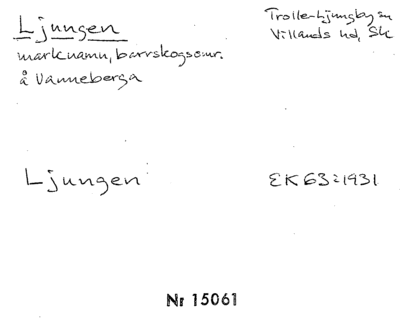 Ljungen
marknamn, barrskogsomr.
å Vanneberga
Trolle-Ljungby sn
Villands hd, Sk
Ljungen
EK 63:1931
Nr 15061